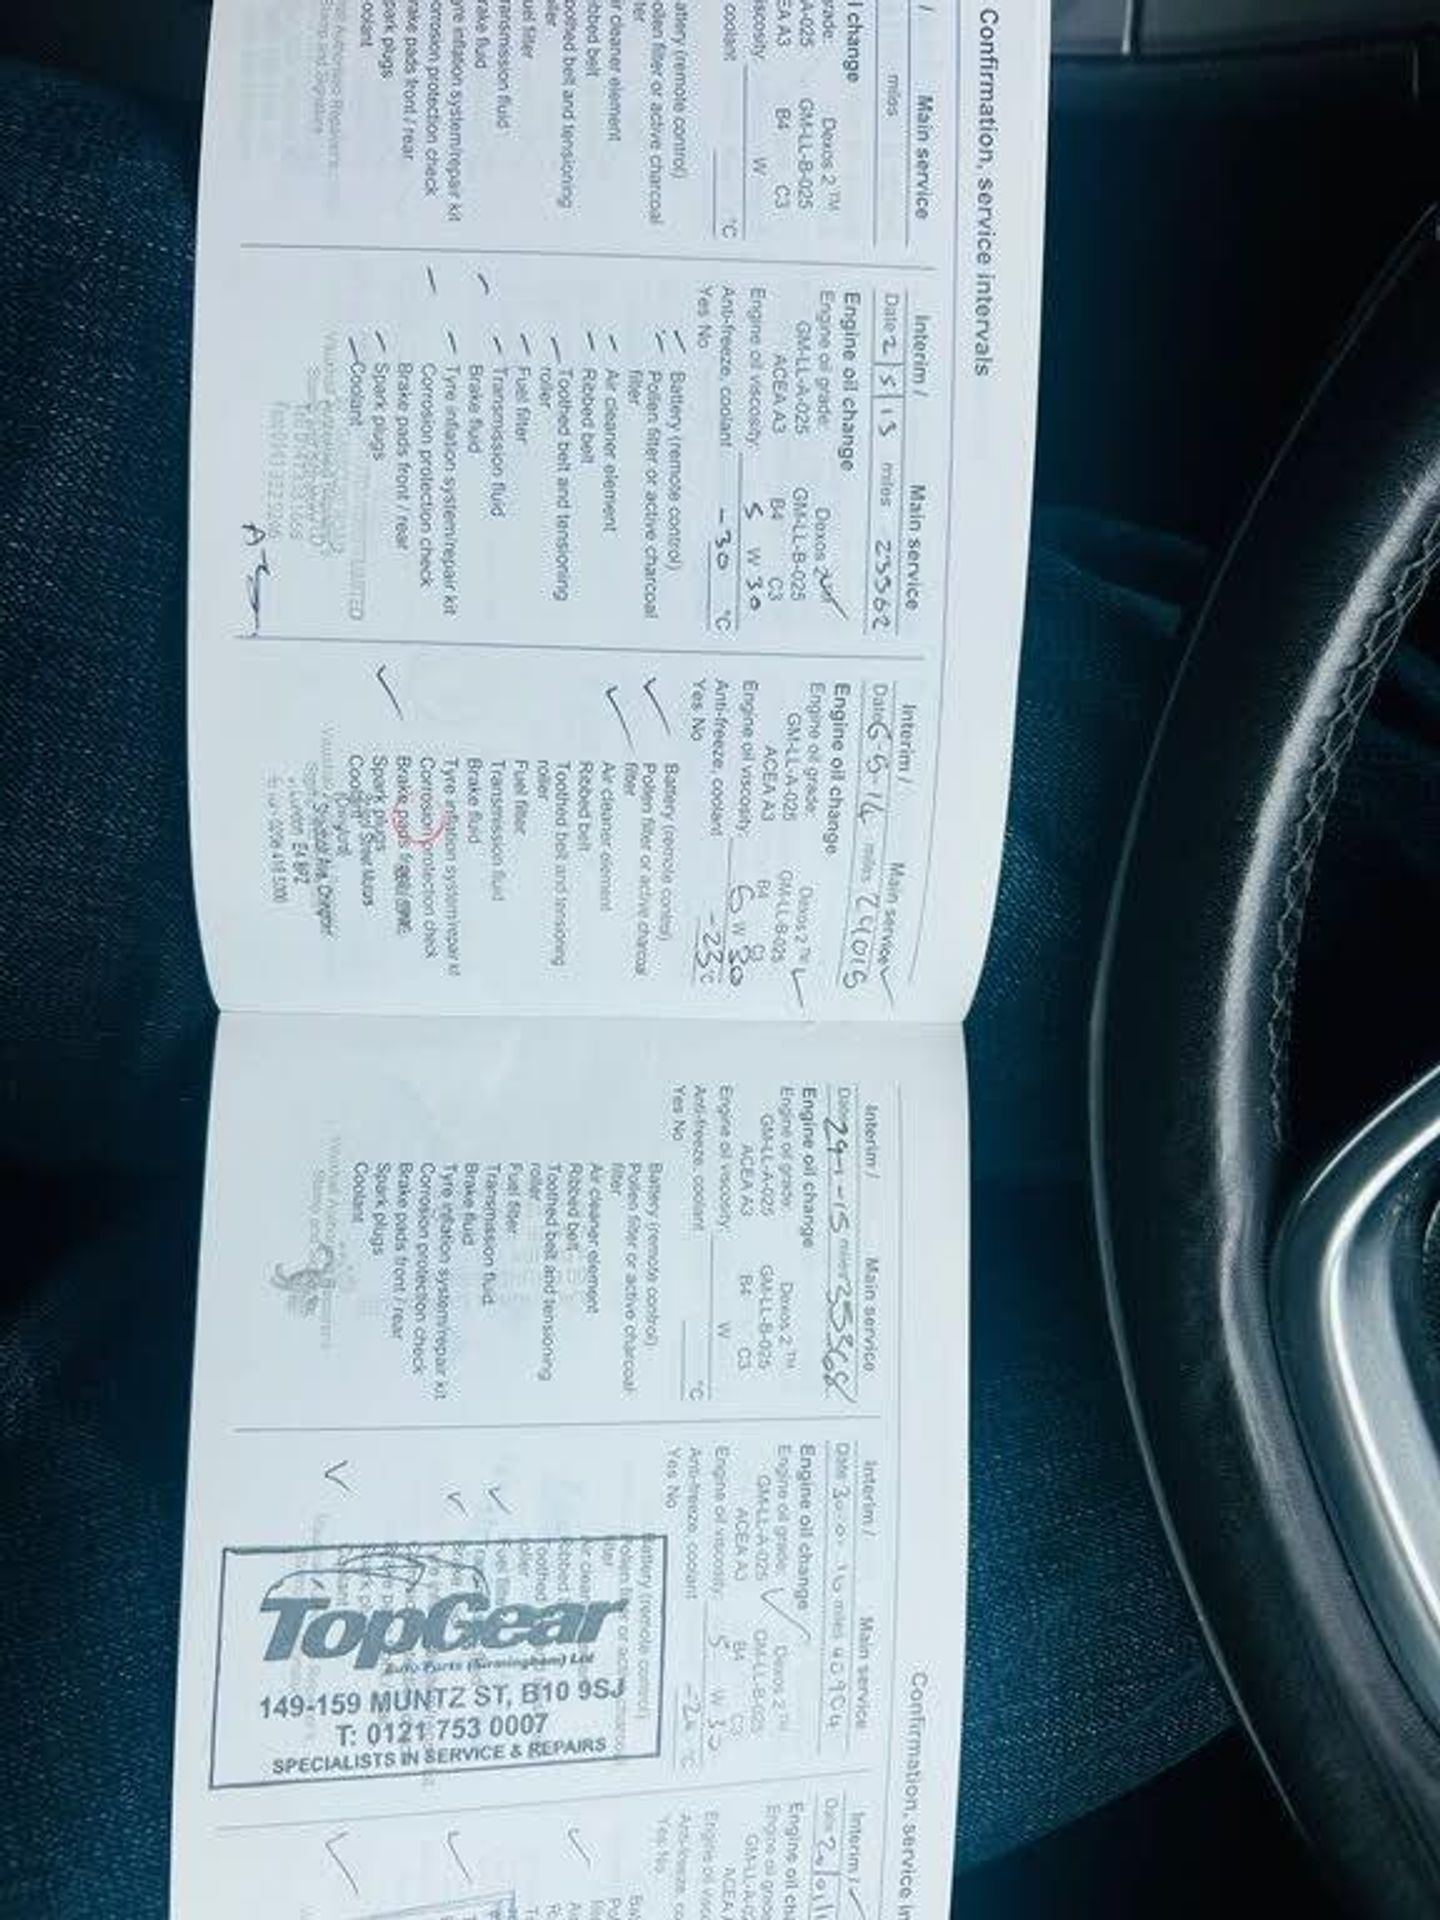 Confirmation, service intervals
/ Main service
miles
l change
rade:
Dexos 2 ™
A-025 GM-LL-B-025
EA A3 B4 C3
iscosity W
coolant °C
attery (remote control)
ollen filter or active charcoal
ter
r cleaner element
bbed belt
oothed belt and tensioning
ller
uel filter
nsmission fluid
rake fluid
yre inflation system/repair kit
orrosion protection check
rake pads front / rear
park plugs
oolant
Interim / Main service
Date 2 5 15 miles 23562
Engine oil change
Engine oil grade: Dexos
GM-LL-A-025 GM-LL-B-025
ACEA A3 B4 C3
Engine oil viscosity: 5 W 30
Anti-freeze, coolant -30 °C
Yes No
Battery (remote control)
Pollen filter or active charcoal
filter
Air cleaner element
Ribbed belt
Toothed belt and tensioning
roller
Fuel filter
Transmission fluid
Brake fluid
Tyre inflation system/repair kit
Corrosion protection check
Brake pads front / rear
Spark plugs
Coolant
Interim / Main service
Date 6-5-14 miles 29015
Engine oil change
Engine oil grade: Dexos 2 ™
GM-LL-A-025 GM-LL-B-025
ACEA A3 B4 C3
Engine oil viscosity: W 30
Anti-freeze, coolant -23 °C
Yes No
Battery (remote control)
Pollen filter or active charcoal
filter
Air cleaner element
Ribbed belt
Toothed belt and tensioning
roller
Fuel filter
Transmission fluid
Brake fluid
Tyre inflation system/repair kit
Corrosion protection check
Brake pads
Spark plugs
Coolant
Interim / Main service
Date miles 35368
Engine oil change
Engine oil grade: Dexos 2 ™
GM-LL-A-025 GM-LL-B-025
ACEA A3 B4 C3
Engine oil viscosity: W
Anti-freeze, coolant °C
Yes No
Battery (remote control)
Pollen filter or active charcoal
filter
Air cleaner element
Ribbed belt
Toothed belt and tensioning
roller
Fuel filter
Transmission fluid
Brake fluid
Tyre inflation system/repair kit
Corrosion protection check
Brake pads front / rear
Spark plugs
Coolant
Confirmation, service in
Interim / Main service
Date 16 miles 40904
Engine oil change
Engine oil grade: Dexos 2 ™
GM-LL-A-025 GM-LL-B-025
ACEA A3 B4 C3
Engine oil viscosity: 5 W 30
Anti-freeze, coolant °C
Yes No
Battery (remote control)
TopGear
Auto Parts (Birmingham) Ltd
149-159 MUNTZ ST, B10 9SJ
T: 0121 753 0007
SPECIALISTS IN SERVICE & REPAIRS
Interim /
Date
Engine oil cha
Engine oil grade
GM-LL-A-02
ACEA
Engine oil visco
Anti-freeze, co
Yes No